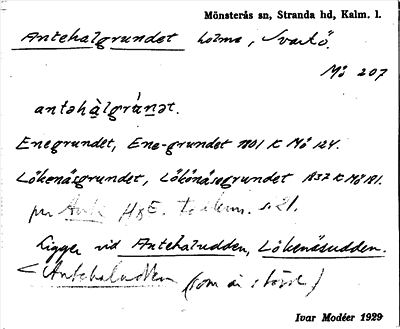 Mönsterås sn, Stranda hd, Kalm. l.
Antehalgrundet holme, Svartö.
Mö 207
antəhàlgrúnət.
Enegrundet, Ene-grundet 1801 K Mö 124.
Lökenäsgrundet, Lökönäsegrundet 1837 K Mö 181.
H&E. s. 21.
Ligger vid Antehaludden, Lökenäsudden.
< Antehaludden (som är större)
Ivar Modéer 1929